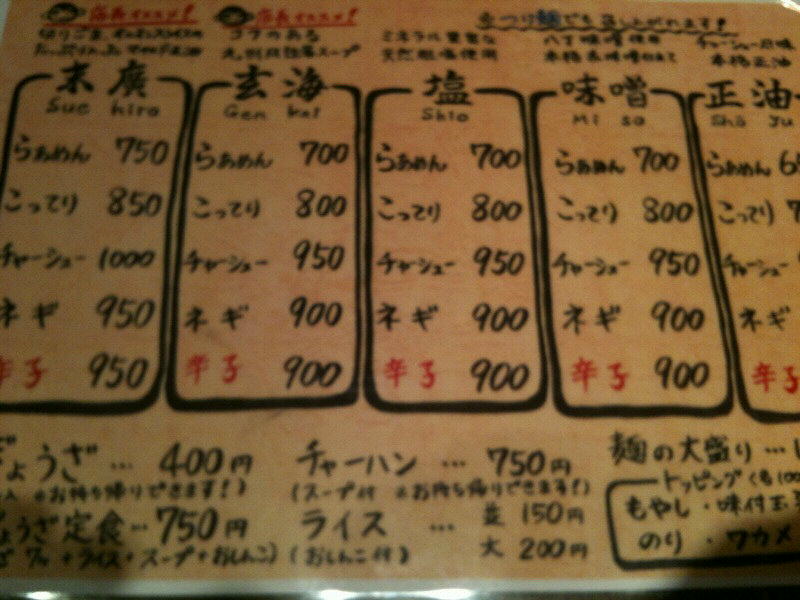 店長オススメ! 店長オススメ!
コクのある ミネラル豊富な 八丁味噌使用
天然 塩使用
末廣 玄海 塩 味噌 正油
Sue hiro Gen kai Shio Mi so Shō yu
らぁめん 750 らぁめん 700 らぁめん 700 らぁめん 700 らぁめん
こってり 850 こってり 800 こってり 800 こってり 800 こってり
チャーシュー 1000 チャーシュー 950 チャーシュー 950 チャーシュー 950 チャーシュー
ネギ 950 ネギ 900 ネギ 900 ネギ 900 ネギ
辛子 950 辛子 900 辛子 900 辛子 900 辛子
ぎょうざ… 400円 チャーハン … 750円 麺の大盛り …
お持ち帰りできます!) (スープ付 お持ち帰りできます!) トッピング
ぎょうざ定食… 750円 ライス … 並 150円 もやし・味付玉
+ライス+スープ+おしんこ) (おしんこ付) 大 200円 のり ・ワカメ